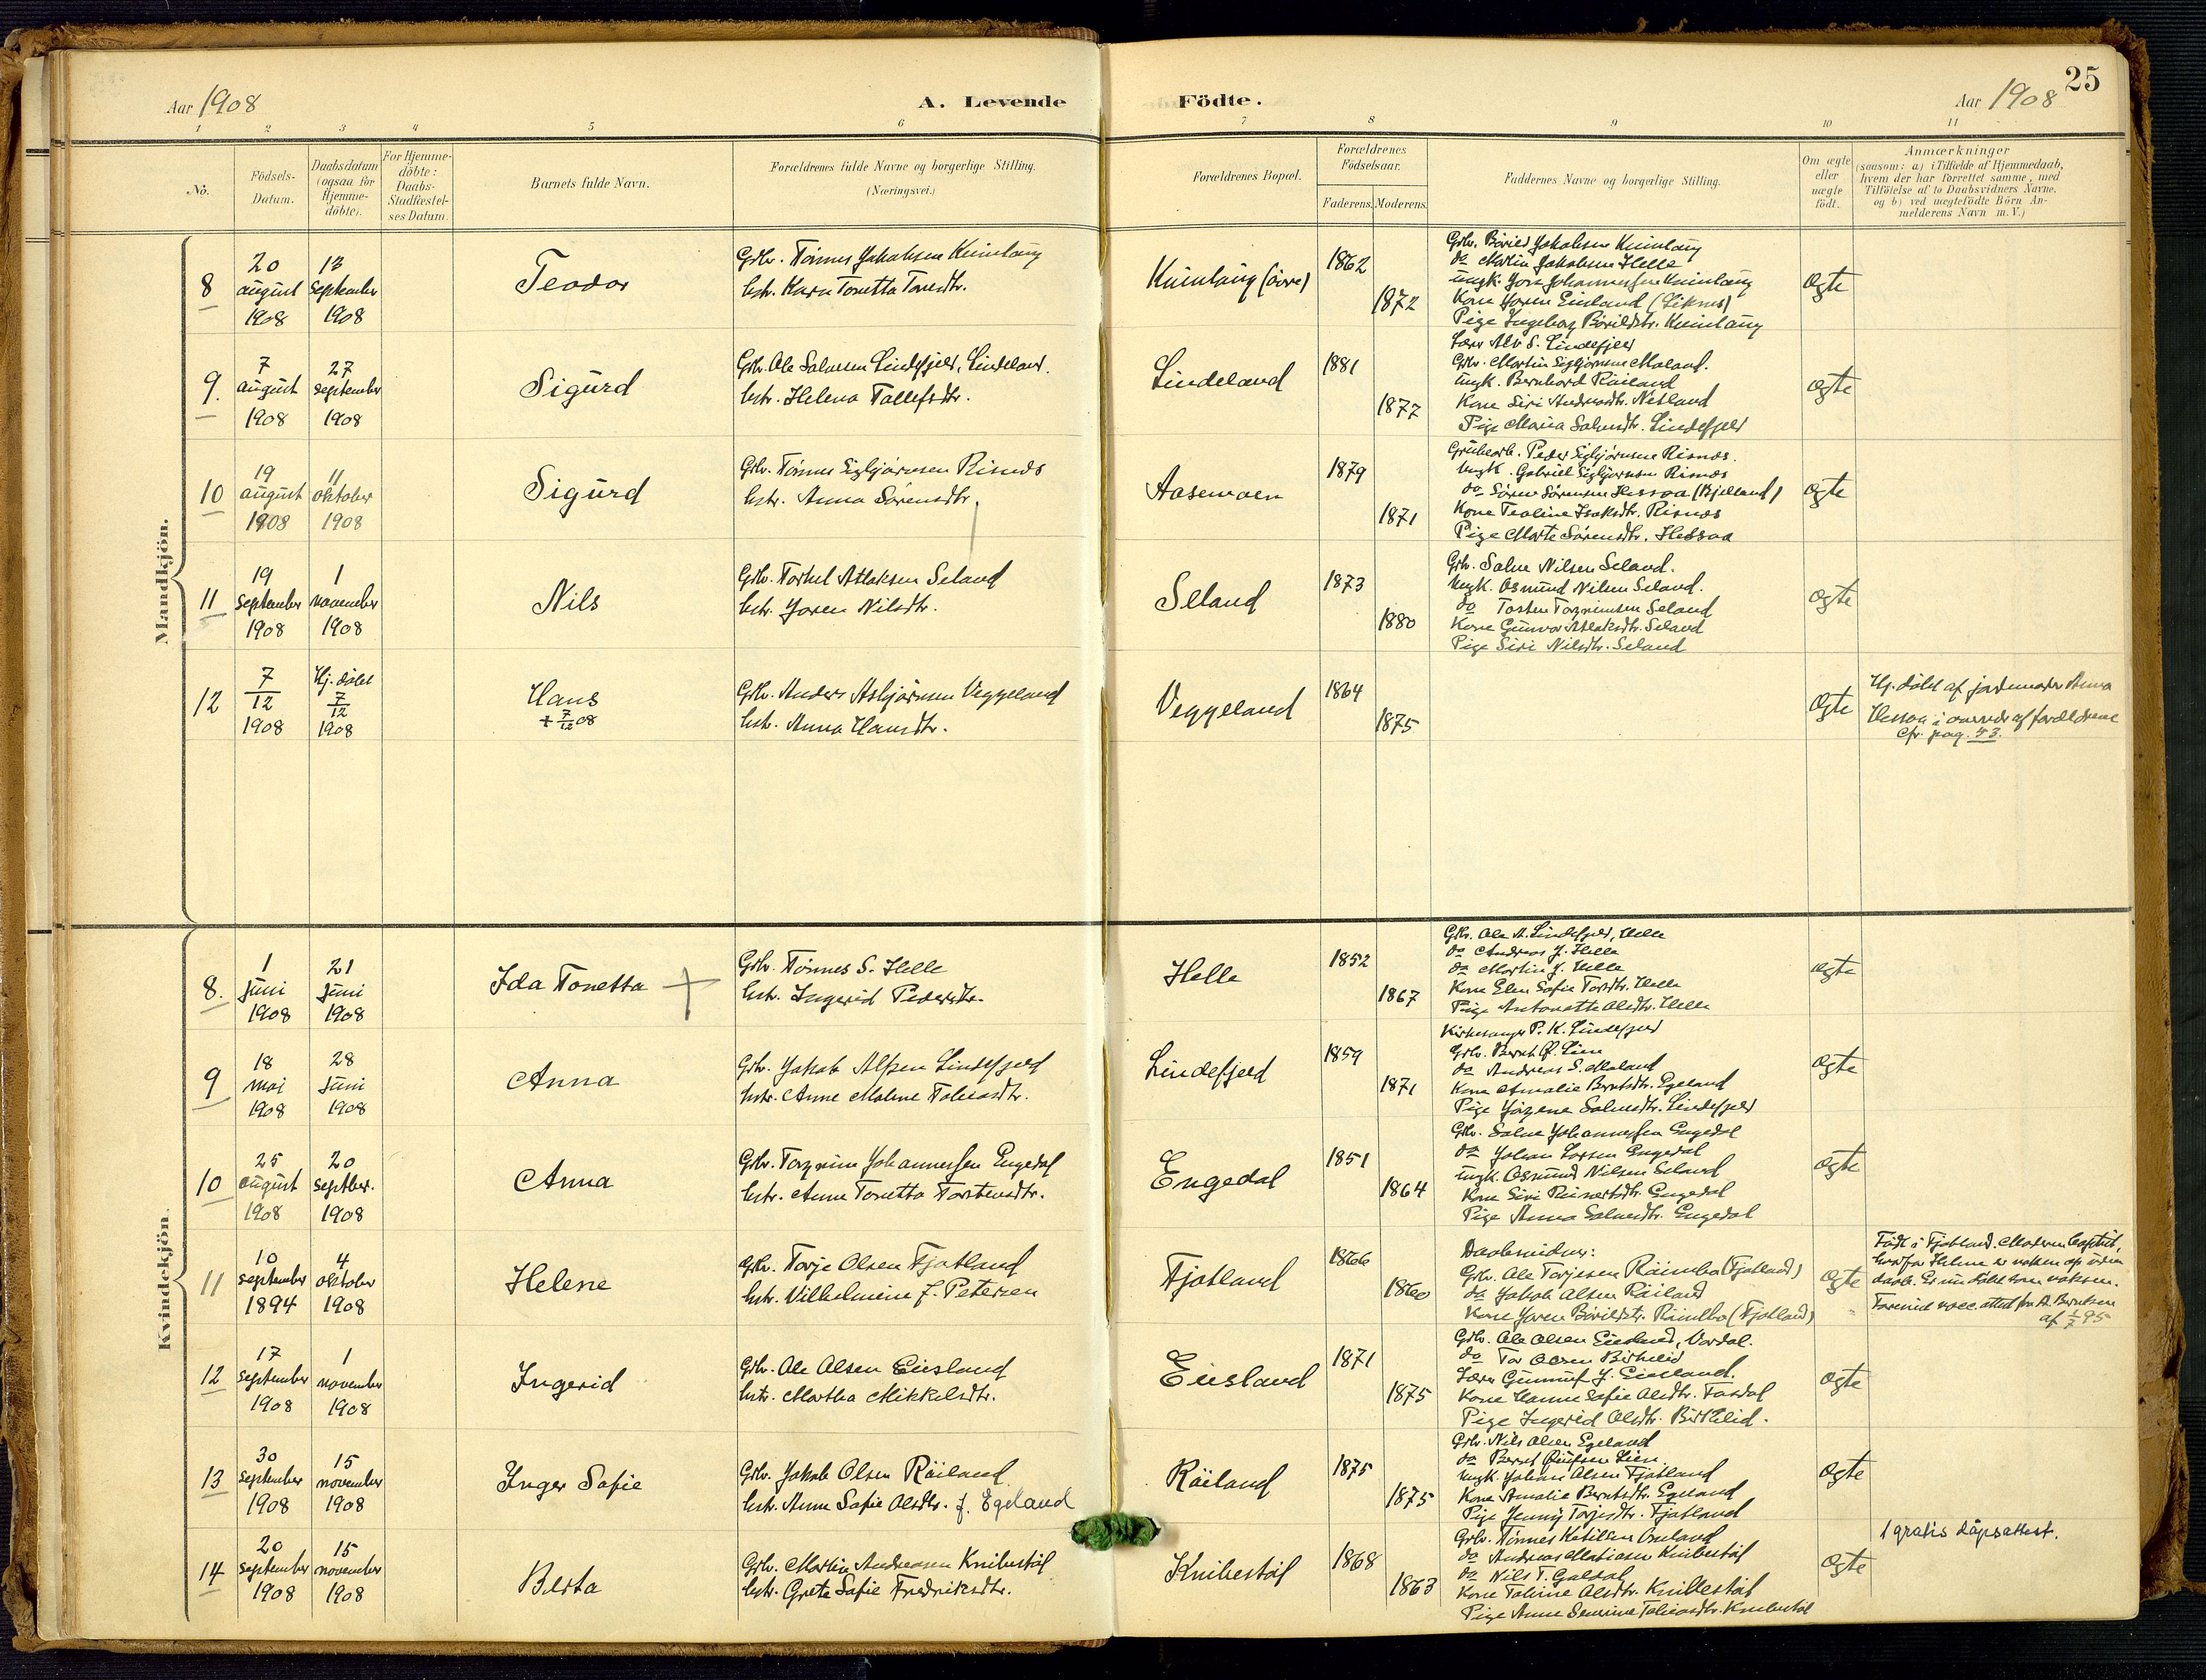 Aar 1908
A. Levende Födte.
Aar 1908
25
1 2 3 4 5 6 7 8 9 10 11
No.
Födsels-Datum.
Daabsdatum (ogsaa for Hjemme-döbte).
For Hjemme-döbte: Daabs-Stadfæstel-ses Datum.
Barnets fulde Navn.
Forældrenes fulde Navne og borgerlige Stilling. (Næringsvei.)
Forældrenes Bopæl.
Forældrenes Födselsaar.
Faderens. Moderens.
Faddernes Navne og borgerlige Stilling.
Om ægte eller uægte födt.
Anmærkninger
(saasom: a) i Tilfælde af Hjemmedaab,
hvem der har forrettet samme, med
Tilföielse af to Daabsvidners Navne,
og b) ved uægtefödte Börn An-
melderens Navn m. V.)
Mandkjön.
8
20 august 1908
13 september 1908
Teodor
Grbr. Tönnes Jakobsen Kvinlaug
hstr. Karn Tonetta Tonesdtr.
Kvinlaug (övre)
1862
1872
Grbr. Böriel Jakobsen Kvinlaug
do Martin Jakobsen Helle
ungk. Jon Johannessen Kvinlaug
Kone Joren Eisland
Pige Ingeborg Börildstr. Kvinlaug
ægte
9.
7 august 1908
27 september 1908
Sigurd
Grbr. Ole Salvesen Lindefjeld, Lindeland.
hstr. Helena Tallefsdtr.
Lindeland
1881
1877
Lærer Alv S. Lindefjeld
Grbr. Martin Sigbjörnsen Moland.
ungk. Bernhard Röiland
Kone Siri Andreasdtr. Netland
Pige Maria Salvesdtr. Lindefjeld
ægte
10
19 august 1908
11 oktober 1908
Sigurd
Grbr. Tönnes Sigbjörnsen Risnes
hstr. Anna Sörensdtr.
Aasemoen
1879
1871
Grubearb. Peder Sigbjörnsen Risnes.
ungk. Gabriel Sigbjörnsen Risnes
do Sören Sörensen Hessaa (Bjelland)
Kone Tealine Isaksdtr. Risnes
Pige Marte Sörensdtr. Hessaa
ægte
11
19 september 1908
1 november 1908
Nils
Grbr. Torkel Atlaksen Seland
hstr. Joren Nilsdtr.
Seland
1873
1880
Grbr. Salve Nilsen Seland.
ungk. Osmund Nilsen Seland.
do Tosten Torgrimsen Seland
Kone Gunvor Atlaksdtr. Seland
Pige Siri Nilsdtr. Seland
ægte
12
7/12 1908
Hj. döbt 7/12 1908
Hans
+ 7/12 08
Grbr. Anders Asbjörnsen Veggeland
hstr. Anna Hansdtr.
Veggeland
1864
1875
ægte
Hj. döbt af jordemoder Anna
Hessaa i overvær af forældrene
cfr. pag. 53.
Kvindekjön.
8.
1 juni 1908
21 juni 1908
Ida Tonetta +
Grbr. Tönnes S. Helle
hstr. Ingerid Pedersdtr.
Helle
1852
1867
Grbr. Ole A. Lindefjeld, Helle
do Andreas J. Helle
do Martin J. Helle
Kone Elen Sofie Torsdtr. Helle
Pige Antonette Olsdtr. Helle
ægte
9
18 mai 1908
28 juni 1908
Anna
Grbr. Jakob Alfsen Lindefjeld
hstr. Anne Malene Tobiasdtr.
Lindefjeld
1859
1871
Kirkesanger P. K. Lindefjeld
Grbr. Bernt Q. Lien
do Andreas S. Moland
Kone Amalie Berntsdtr. Egeland
Pige Jörgine Salvesdtr. Lindefjeld
ægte
10
25 august 1908
20 septber. 1908
Anna
Grbr. Torgrim Johannessen Engedal
hstr. Anne Tonetta Torstensdtr.
Engedal
1851
1864
Grbr. Salve Johannessen Engedal
do Johan Larsen Engedal
ungk. Osmund Nilsen Seland
Kone Siri Reinertsdtr. Engedal
Pige Anna Salvesdtr. Engedal
ægte
11
10 september 1894
4 oktober 1908
Helene
Grbr. Torje Olsen Fjotland
hstr. Vilhelmine f. Petersen
Fjotland
1866
1860
Daabsvidner:
Grbr. Ole Torjesen (Fjotland)
do Jakob Olsen Röiland
Kone Joren Börildstr. (Fjotland)
ægte
Födt i Fjotland. Moderen baptist,
hvorfor Helene er vokset op uden
daab. Er nu döbt som voksen.
Forevist vacc. attest fra A. Berntsen
af 1/7 95
12
17 september 1908
1 november 1908
Ingerid
Grbr. Ole Olsen Eiesland
hstr. Martha Mikkelsdtr.
Eiesland
1871
1875
Grbr. Ole Olsen Eiesland,
do Tor Olsen Birkelid
Lærer Gunnuf J. Eiesland.
Kone Hanne Sofie Olsdtr.
Pige Ingerid Olsdtr. Birkelid.
ægte
13
30 september 1908
15 november 1908
Inger Sofie
Grbr. Jakob Olsen Röiland
hstr. Anne Sofie Olsdtr. f. Egeland
Röiland
1875
1875
Grbr. Nils Olsen Egeland
do Bernt Lien
ungk. Johan Olsen Fjotland
Kone Amalie Berntsdtr. Egeland
Pige Jenny Torjesdtr. Fjotland
ægte
14
20 september 1908
15 november 1908
Berta
Grbr. Martin Andreasen Knibestöl
hstr. Grete Sofie Fredriksdtr.
Knibestöl
1868
1863
Grbr. Tönnes Ketilsen Omland
do Andreas Mathiasen Knibestöl
do Nils T. Galdal
Kone Tobine Olsdtr. Knibestöl
Pige Anne Severine Tobiasdtr. Knibestöl
ægte
1 gratis dåpsattest.